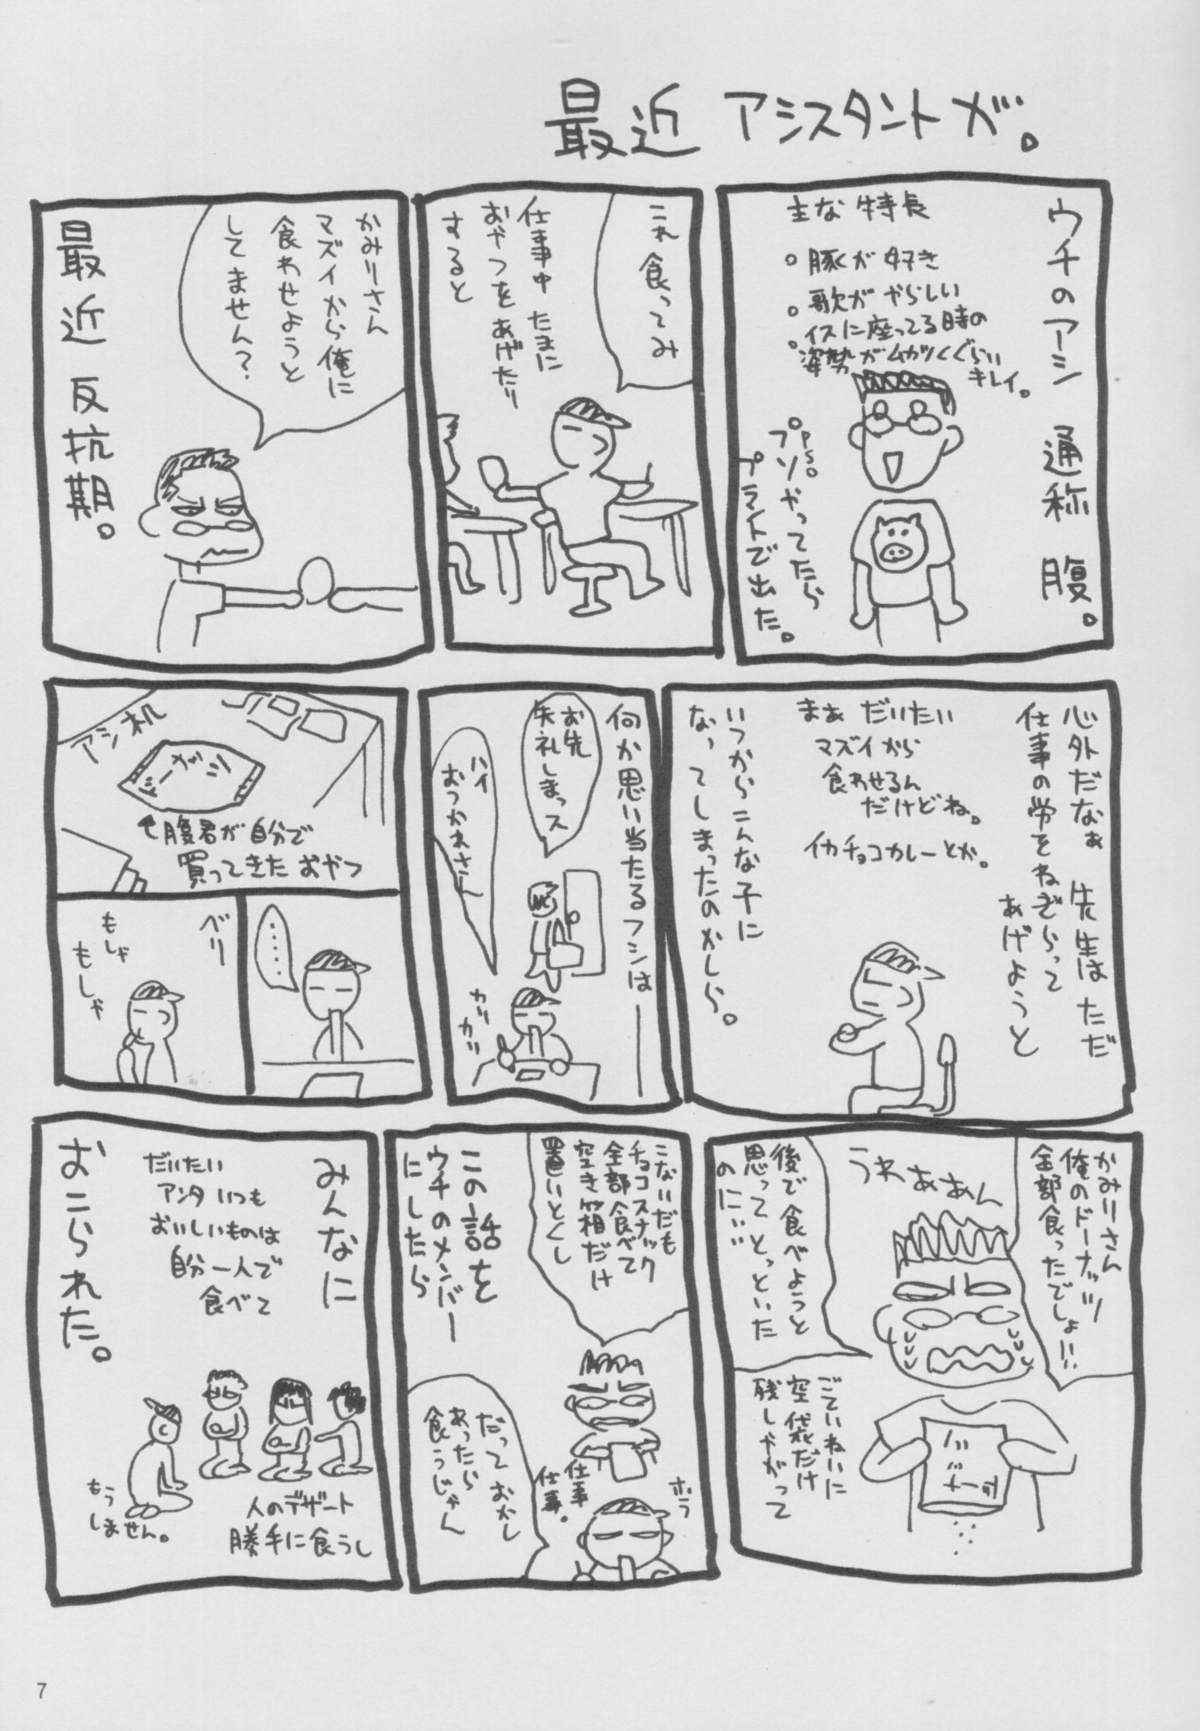 最近 アシスタントが。
ウチのアシ 通称 腹。
主な特長
。豚が好き
。歌がやらしい
。イスに座ってる時の
姿勢がムカツくぐらい
キレイ。
プソやってたら
プラントで出た。
これ食ってみ
仕事中たまに
おやつをあげたり
すると
かみりーさん
マズイから俺に
食わせようと
してません?
最近 反抗期。
心外だなぁ 先生はただ
仕事の労をねぎらって
あげようと
まぁ だいたい
マズイから
食わせるん
だけどね。
イカチョコカレーとか。
いつからこんな子に
なってしまったのかしら。
何か思い当たるフシは
お先
失礼しまっス
ハイ
おつかれさん
カリ
カリ
アシ机
↑腹君が自分で
買ってきたおやつ
・・・・・
ベリ
もしゃ
もしゃ
かみりーさん
俺のドーナッツ
全部食ったでしょ!!
うわぁあん
後で食べようと
思ってとっといた
のに!!
ごていねいに
空袋だけ
残しやがって
こないだも
チョコスナック
全部食べて
空き箱だけ
置いとくし
この話を
ウチのメンバー
にしたら
だっておかし
あったら
食うじゃん
仕事
仕事。
ホラ
みんなに
おこられた。
だいたい
アンタいつも
おいしいものは
自分一人で
食べて
人のデザート
勝手に食うし
もう
しません。
7